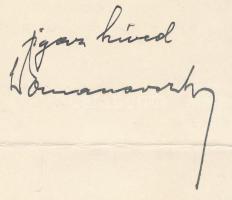 igaz híved
Domanovszky